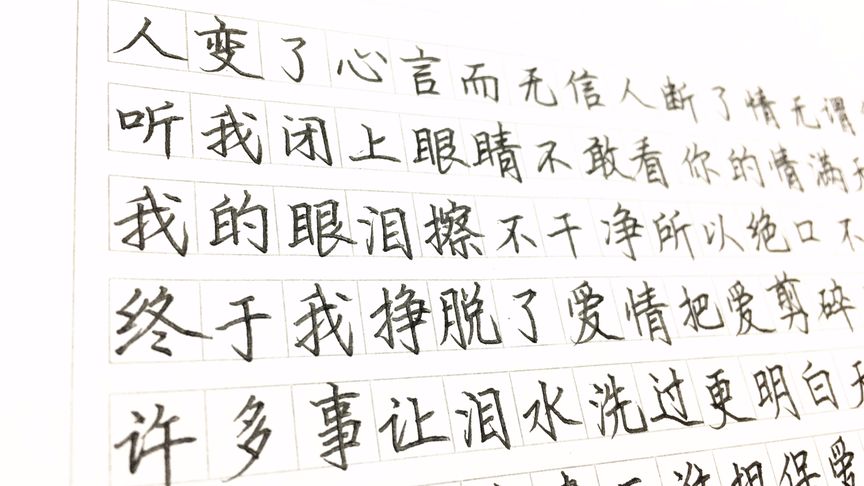 人变了心言而无信人断了情无谓
听我闭上眼睛不敢看你的情满
我的眼泪擦不干净所以绝口不
终于我挣脱了爱情把爱剪碎
许多事让泪水洗过更明白
谁担保爱